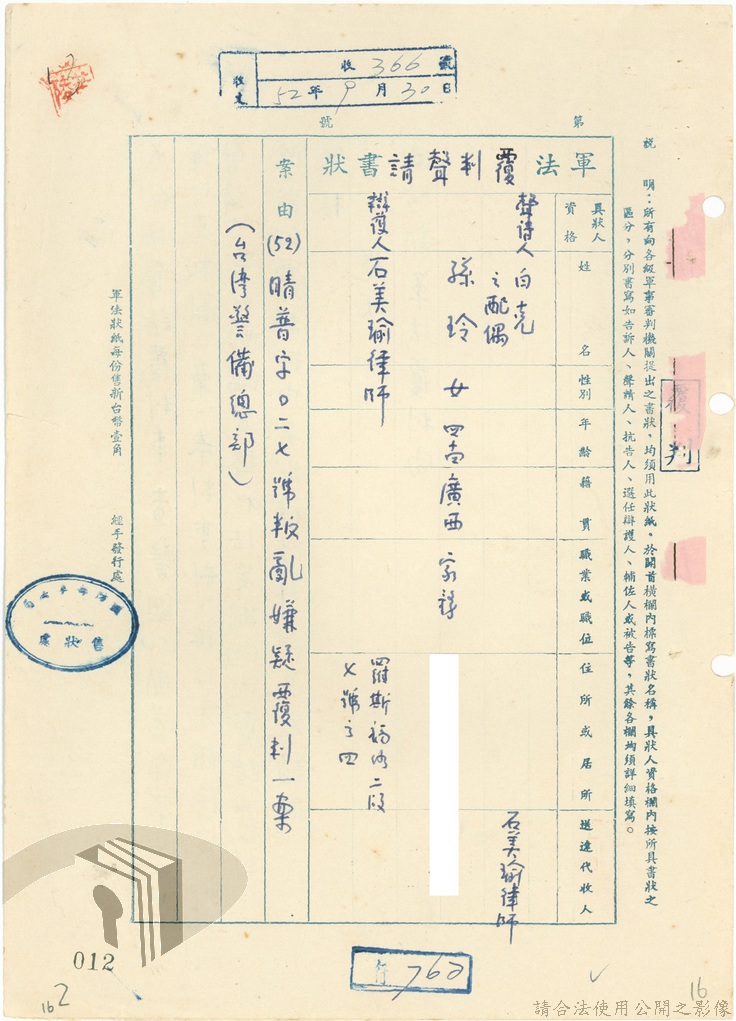 收 366 號
收文
52年9月30日
第 號
說 明：所有向各級軍事審判機關提出之書狀，均須用此狀紙，於開首橫欄內標寫書狀名稱，具狀人資格欄內按所具書狀之
區分，分別書寫如告訴人、聲請人、抗告人、選任辯護人、輔佐人或被告等，其餘各欄均須詳細填寫。
覆判
軍法覆判聲請書狀
具狀人
資格
姓 名
性別
年齡
籍貫
職業或職位
住所或居所
送達代收人
聲請人 白克
之配偶
孫玲 女 四 廣西
石美瑜律師
辯護人 石美瑜律師
羅斯福路二段
七號之四
案由 (52)晴普字0二七號叛亂嫌疑覆判一案
(台灣警備總部)
軍法狀紙每份售新台幣壹角 經手發行處
售狀處
762
012
16 2
16
請合法使用公開之影像